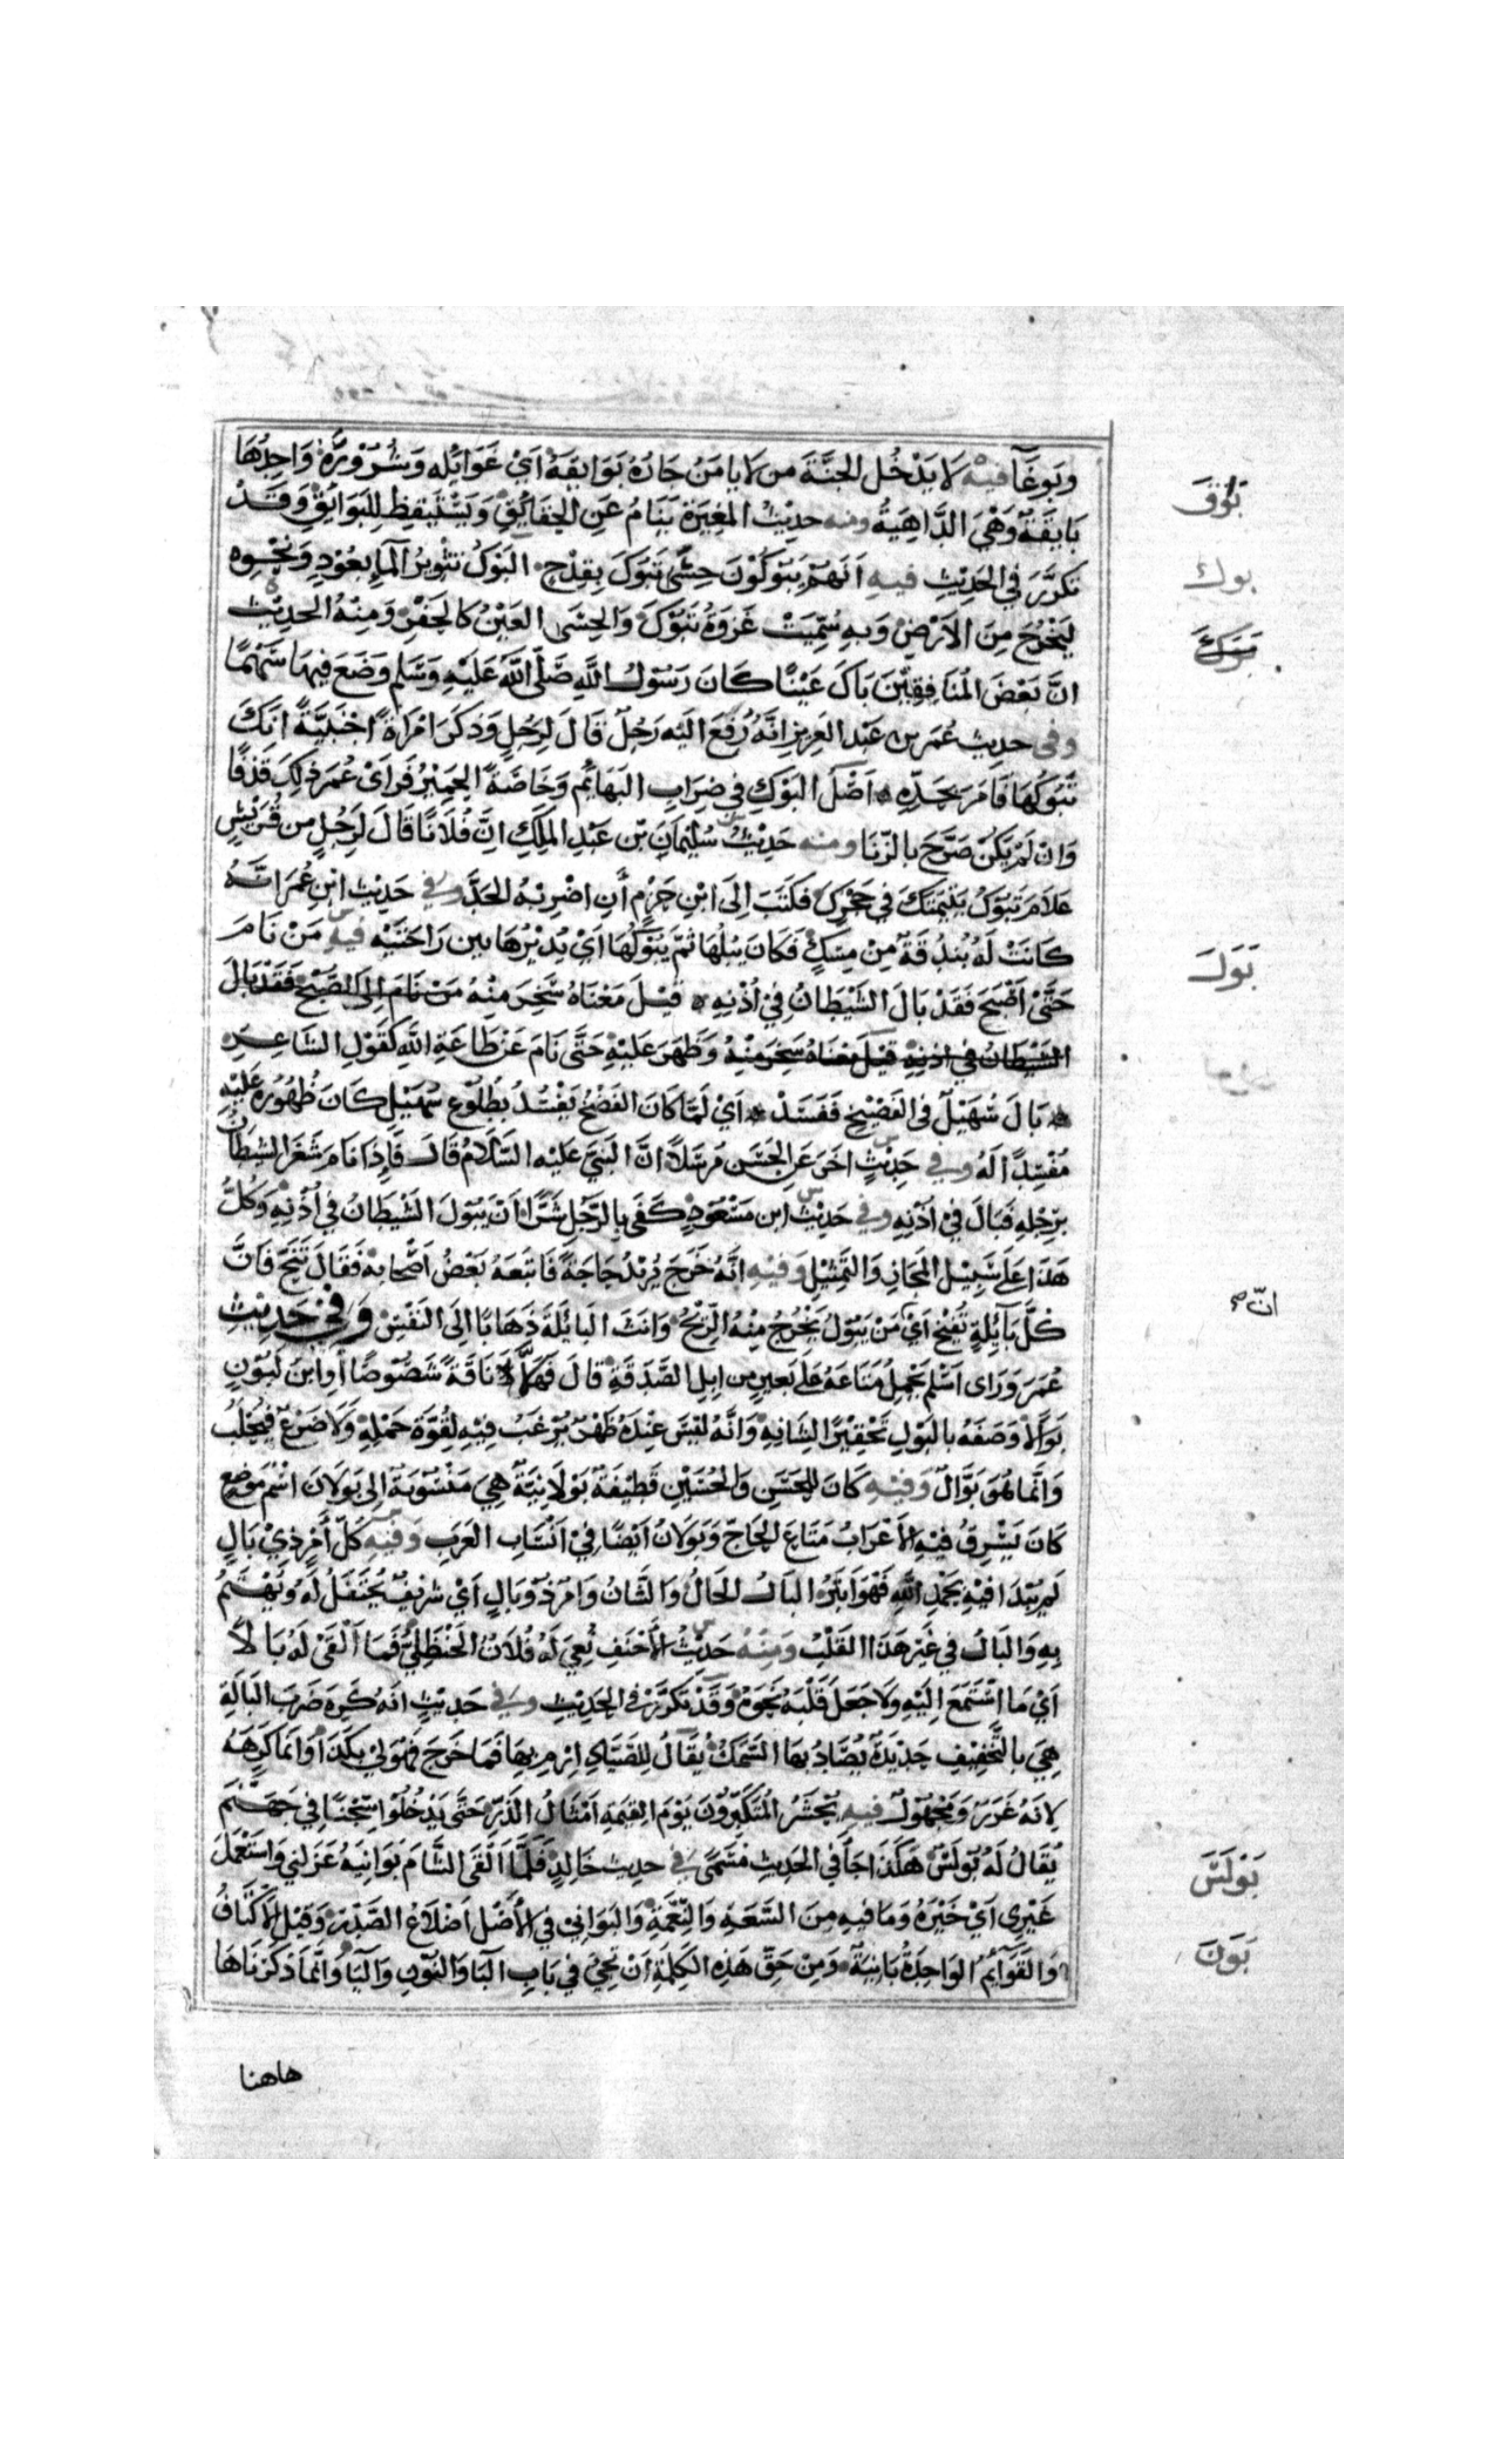 وبوغا فيه لا يدخل الجنة من لا يامن جاره بوايقه اي غوايله وشروره واحدها
بايقة وهي الداهية ومنه حديث المغيرة ينام عن الحقايق ويستيقظ للبوايق وقد
تكرر في الحديث فيه انهم يبوكون حسى تبوك بقدح البوك تثوير الماء بعود ونحوه
ليخرج من الارض وبه سميت غزوة تبوك والحسى العين كالجفر ومنه الحديث
ان بعض المنافقين باك عينا كان رسول الله صلى الله عليه وسلم وضع فيها سهما
وفي حديث عمر بن عبد العزيز انه رفع اليه رجل قال لرجل وذكر امراة اجنبية انك
تبوكها فامر بحده اصل البوك في ضراب البهايم وخاصة الحمير فراى عمر ذلك قذفا
وان لم يكن صرح بالزنا ومنه حديث سليمان بن عبد الملك ان فلانا قال لرجل من قريش
علام تبوك يتيمتك في حجرك فكتب الى ابن حزم أن اضربه الحد وفي حديث ابن عمر انه
كانت له بندقة من مسك فكان يبلها ثم يبوكها اي يديرها بين راحتيه فيه من نام
حتى اصبح فقد بال الشيطان في اذنه قيل معناه سخر منه من نام الى الصبح فقد بال
الشيطان في اذنه قيل معناه سخر منه وظهر عليه حتى نام عن طاعة الله كقول الشاعر
بال سهيل في الفضيخ ففسد اي لما كان الفضخ يفسد بطلوع سهيل كان ظهوره عليه
مفسدا له وفي حديث اخر عن الحسن مرسلا ان النبي عليه السلام قال فاذا نام شغر الشيطان
برجله فبال في اذنه وفي حديث ابن مسعود كفى بالرجل شرا ان يبول الشيطان في اذنه وكل
هذا على سبيل المجاز والتمثيل وفيه انه خرج يريد حاجة فاتبعه بعض اصحابه فقال تنح فان
كل بايلة تفيخ اي من يبول يخرج منه الريح وانث البايلة ذهابا الى النفس وفي حديث
عمر وراى اسلم يحمل متاعه على بعير من ابل الصدقة قال فهلا ناقة شصوصا أو ابن لبون
بوالا وصفه بالبول تحقيرا لشانه وانه ليس عنده ظهر يرغب فيه لقوة حمله ولا ضرع فيحلب
وانما هو بوال وفيه كان للحسن والحسين قطيفة بولانية هي منسوبة الى بولان اسم موضع
كان يسرق فيه الاعراب متاع الحاج وبولان ايضا في انساب العرب وفيه كل أمر ذي بال
لم يبدا فيه بحمد الله فهو ابتر البال الحال والشان وامر ذو بال اي شريف يحتفل له ويهتم
به والبال في غير هذا القلب ومنه حديث الأحنف نعي له فلان الحنظلي فما القى له بالا
اي ما استمع اليه ولا جعل قلبه نحوه وقد تكرر في الحديث وفي حديث انه كره ضرب البالة
هي بالتخفيف حديدة يصاد بها السمك يقال للصياد ارم بها فما خرج فهو لي بكذا وانما كرهه
لانه غرر ومجهول فيه يحشر المتكبرون يوم القيمة امثال الذر حتى يدخلوا سجنا في جهنم
يقال له بولس هكذا جا في الحديث مسمى في حديث خالد فلما القى الشام بوانيه عزلني واستعمل
غيري اي خيره وما فيه من السعة والنعمة والبواني في الأصل اضلاع الصدر وقيل الاكتاف
والقوايم الواحدة بانية ومن حق هذه الكلمة ان تجي في باب البا والنون واليا وانما ذكرناها
هاهنا
بوق
بوك
بول
ان صح
بولس
بون